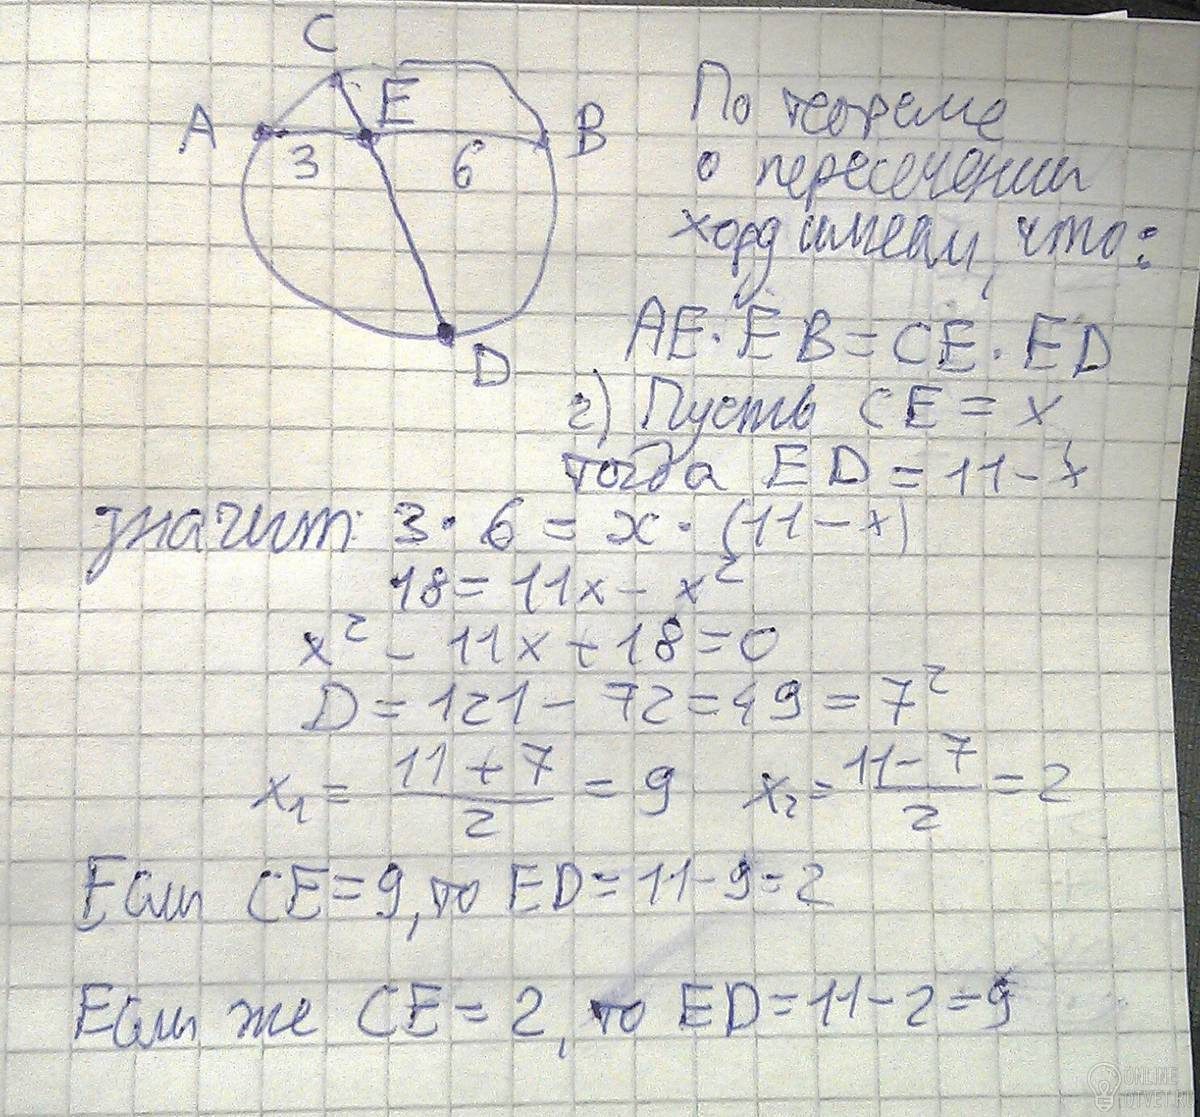 C
A
E
B
3
6
D
По теореме
о пересечении
хорд имеем, что:
AE·EB=CE·ED
2) Пусть CE=x
тогда ED=11-x
значит: 3·6=x·(11-x)
18=11x-x²
x²-11x+18=0
D=121-72=49=7²
x₁=(11+7)/2=9 x₂=(11-7)/2=2
Если CE=9, то ED=11-9=2
Если же CE=2, то ED=11-2=9
ONLINE
OTVET.RU